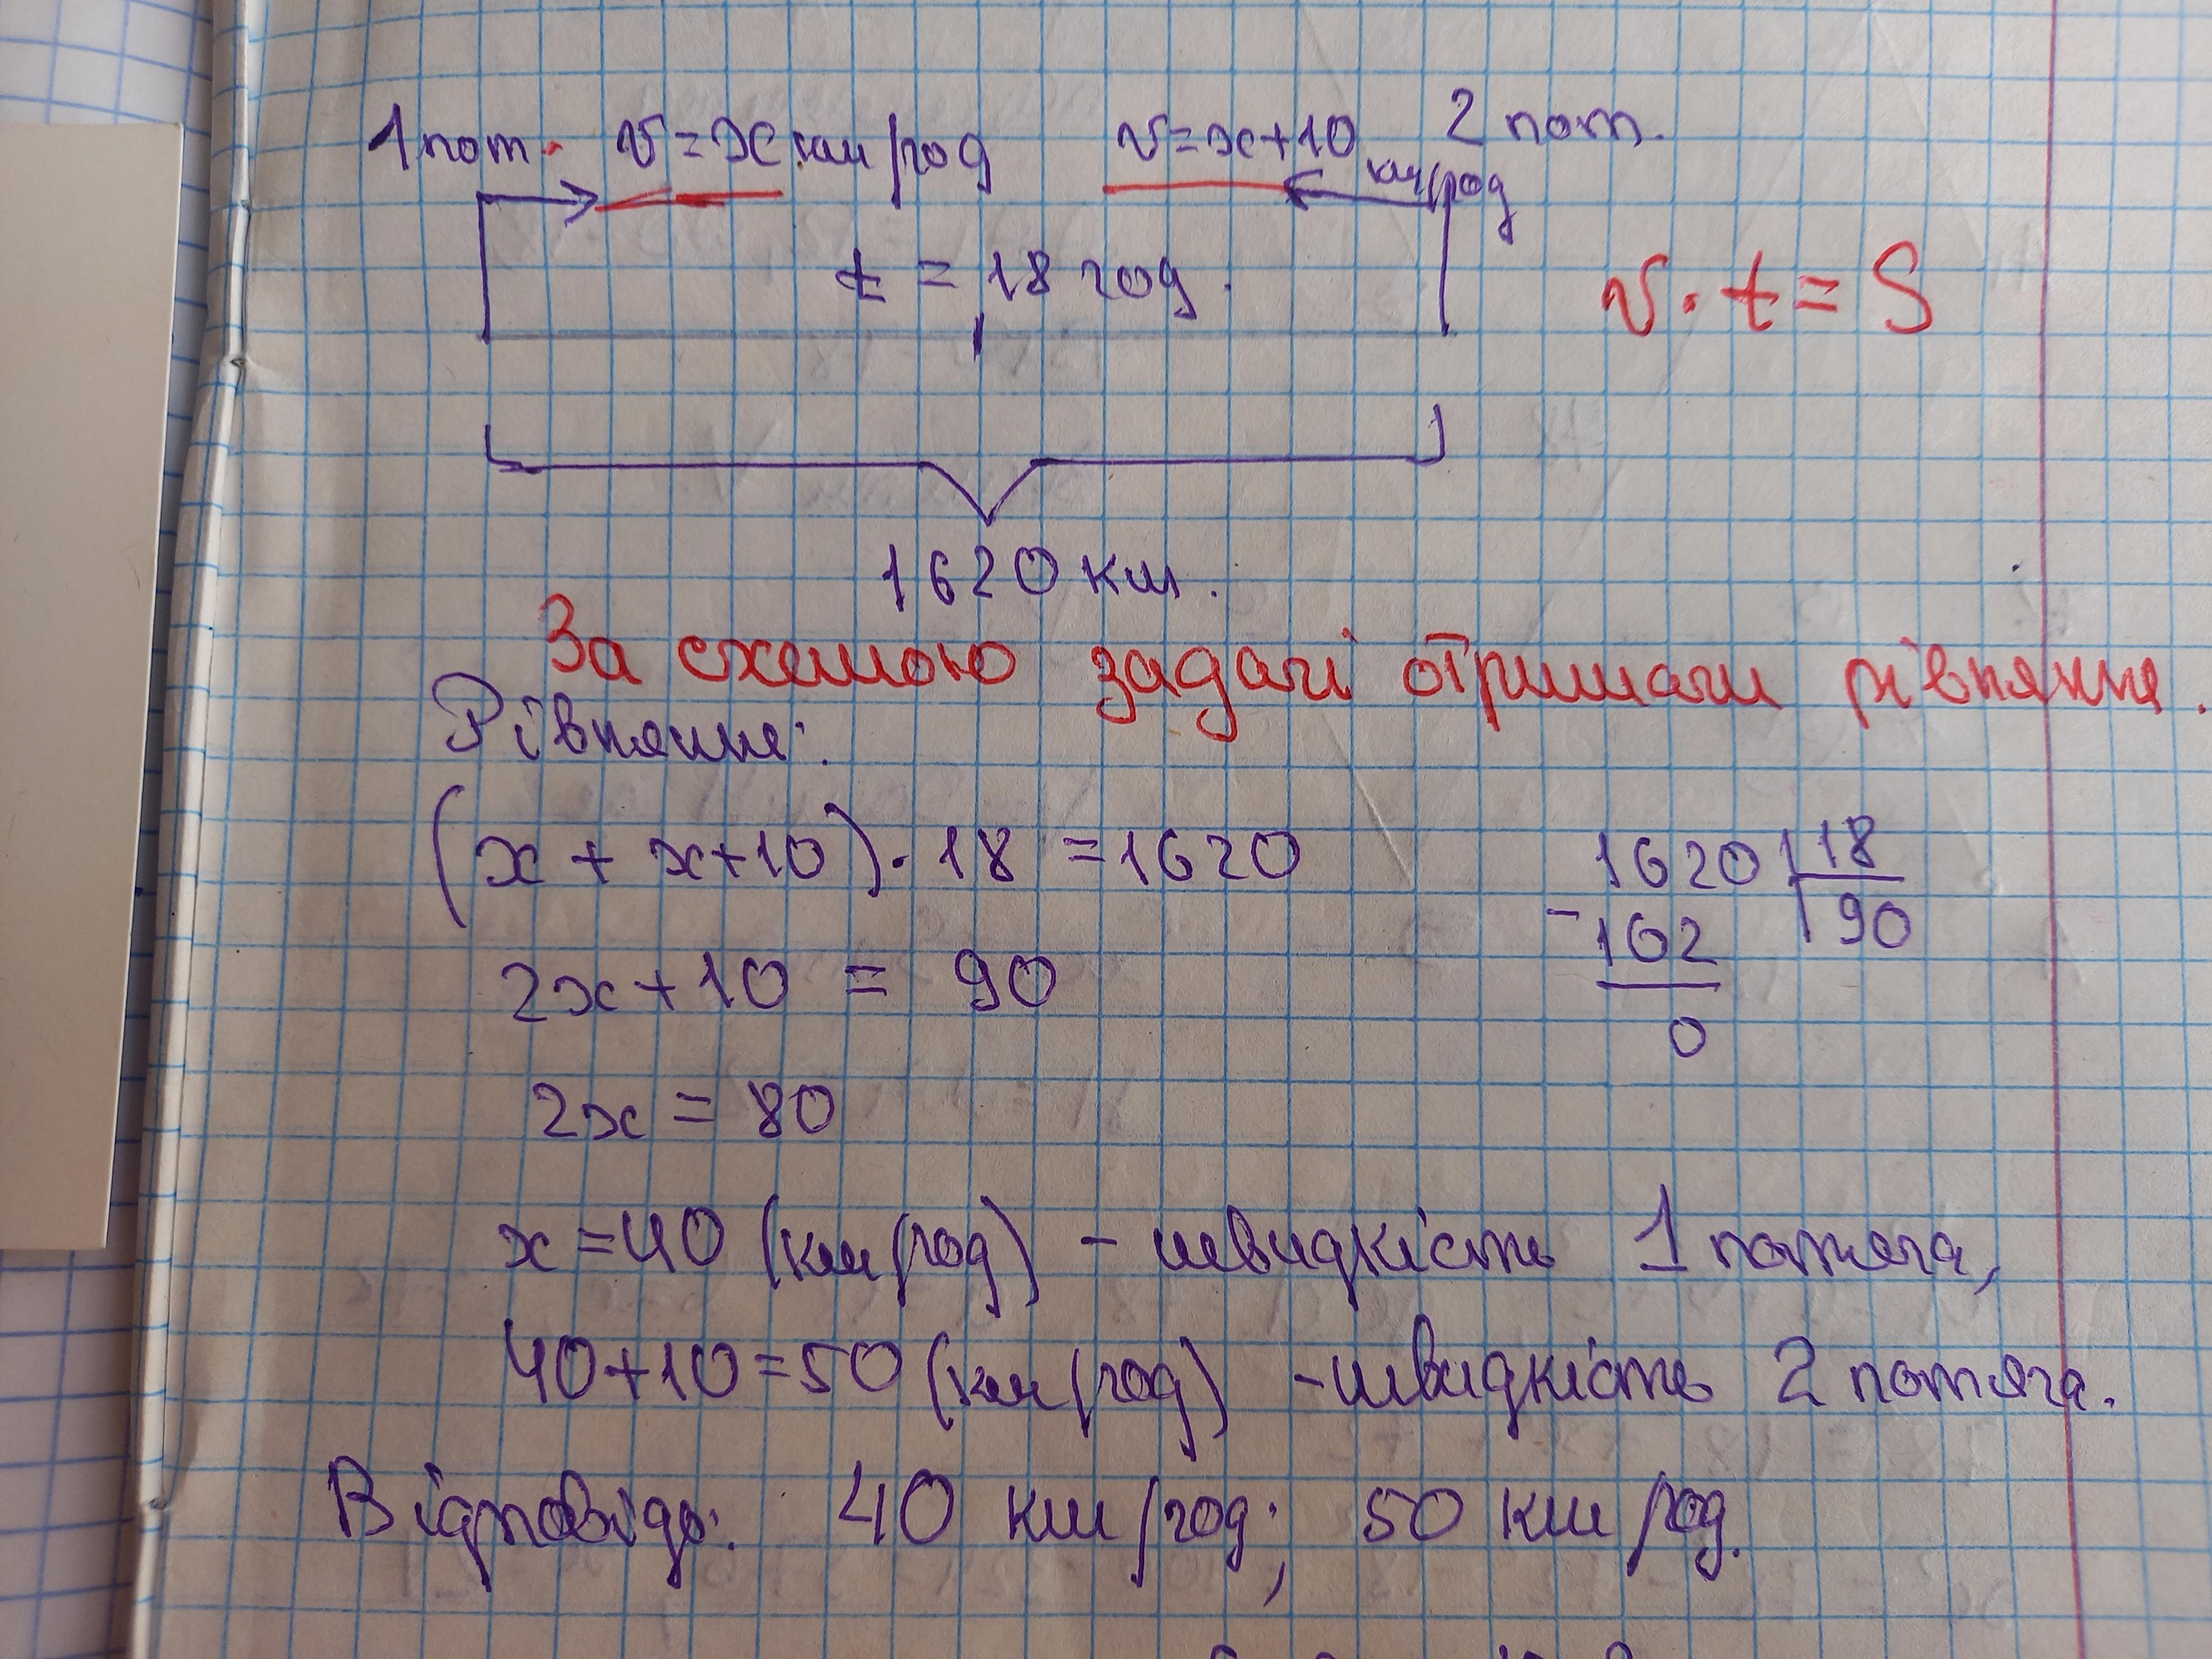 1 пот. v = x км/год v = x+10 км/год 2 пот.
t = 18 год.
v · t = S
1620 км.
За схемою задачі отримали рівняння.
Рівняння:
(x + x+10) · 18 = 1620
1620 | 18
- 162 90
0
2x + 10 = 90
2x = 80
x = 40 (км/год) - швидкість 1 потяга,
40+10=50 (км/год) - швидкість 2 потяга.
Відповідь: 40 км/год; 50 км/год.